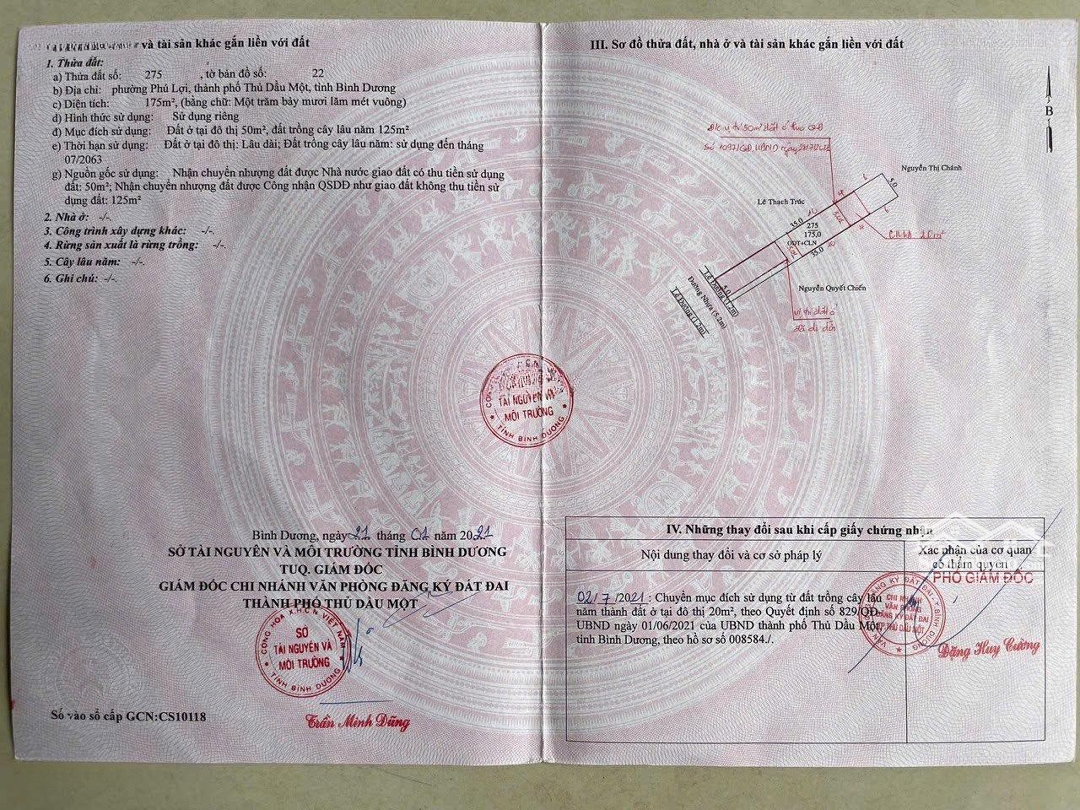 và tài sản khác gắn liền với đất
1. Thửa đất:
a) Thửa đất số: 275 , tờ bản đồ số: 22
b) Địa chỉ: phường Phú Lợi, thành phố Thủ Dầu Một, tỉnh Bình Dương
c) Diện tích: 175m², (bằng chữ: Một trăm bảy mươi lăm mét vuông)
d) Hình thức sử dụng: Sử dụng riêng
đ) Mục đích sử dụng: Đất ở tại đô thị 50m², đất trồng cây lâu năm 125m²
e) Thời hạn sử dụng: Đất ở tại đô thị: Lâu dài; Đất trồng cây lâu năm: sử dụng đến tháng
07/2063
g) Nguồn gốc sử dụng: Nhận chuyển nhượng đất được Nhà nước giao đất có thu tiền sử dụng
đất: 50m²; Nhận chuyển nhượng đất được Công nhận QSDĐ như giao đất không thu tiền sử
dụng đất: 125m²
2. Nhà ở: -/-.
3. Công trình xây dựng khác: -/-.
4. Rừng sản xuất là rừng trồng: -/-.
5. Cây lâu năm: -/-.
6. Ghi chú: -/-.
CỘNG HÒA X.H.C.N VIỆT NAM
SỞ
TÀI NGUYÊN VÀ
MÔI TRƯỜNG
TỈNH BÌNH DƯƠNG
Bình Dương, ngày 21 tháng 01 năm 2021
SỞ TÀI NGUYÊN VÀ MÔI TRƯỜNG TỈNH BÌNH DƯƠNG
TUQ. GIÁM ĐỐC
GIÁM ĐỐC CHI NHÁNH VĂN PHÒNG ĐĂNG KÝ ĐẤT ĐAI
THÀNH PHỐ THỦ DẦU MỘT
Trần Minh Dũng
Số vào sổ cấp GCN:CS10118
TÀI NGUYÊN VÀ
MÔI TRƯỜNG
TỈNH BÌNH DƯƠNG
III. Sơ đồ thửa đất, nhà ở và tài sản khác gắn liền với đất
B
Nguyễn Thị Chánh
5.0
Lê Thạch Trúc
35.0
275
175.0
ODT+CLN
35.0
20m²
Nguyễn Quyết Chiến
5.0
Lề Đường (1.2m)
Đường Nhựa (5.2m)
Lề Đường (1.2m)
vị trí đất ở
IV. Những thay đổi sau khi cấp giấy chứng nhận
Nội dung thay đổi và cơ sở pháp lý
Xác nhận của cơ quan
có thẩm quyền
02/7/2021: Chuyển mục đích sử dụng từ đất trồng cây lâu
năm thành đất ở tại đô thị 20m², theo Quyết định số 829/QĐ-
UBND ngày 01/06/2021 của UBND thành phố Thủ Dầu Một,
tỉnh Bình Dương, theo hồ sơ số 008584./.
PHÓ GIÁM ĐỐC
CHI NHÁNH
VĂN PHÒNG
ĐĂNG KÝ ĐẤT ĐAI
TP THỦ DẦU MỘT
Đặng Huy Cường